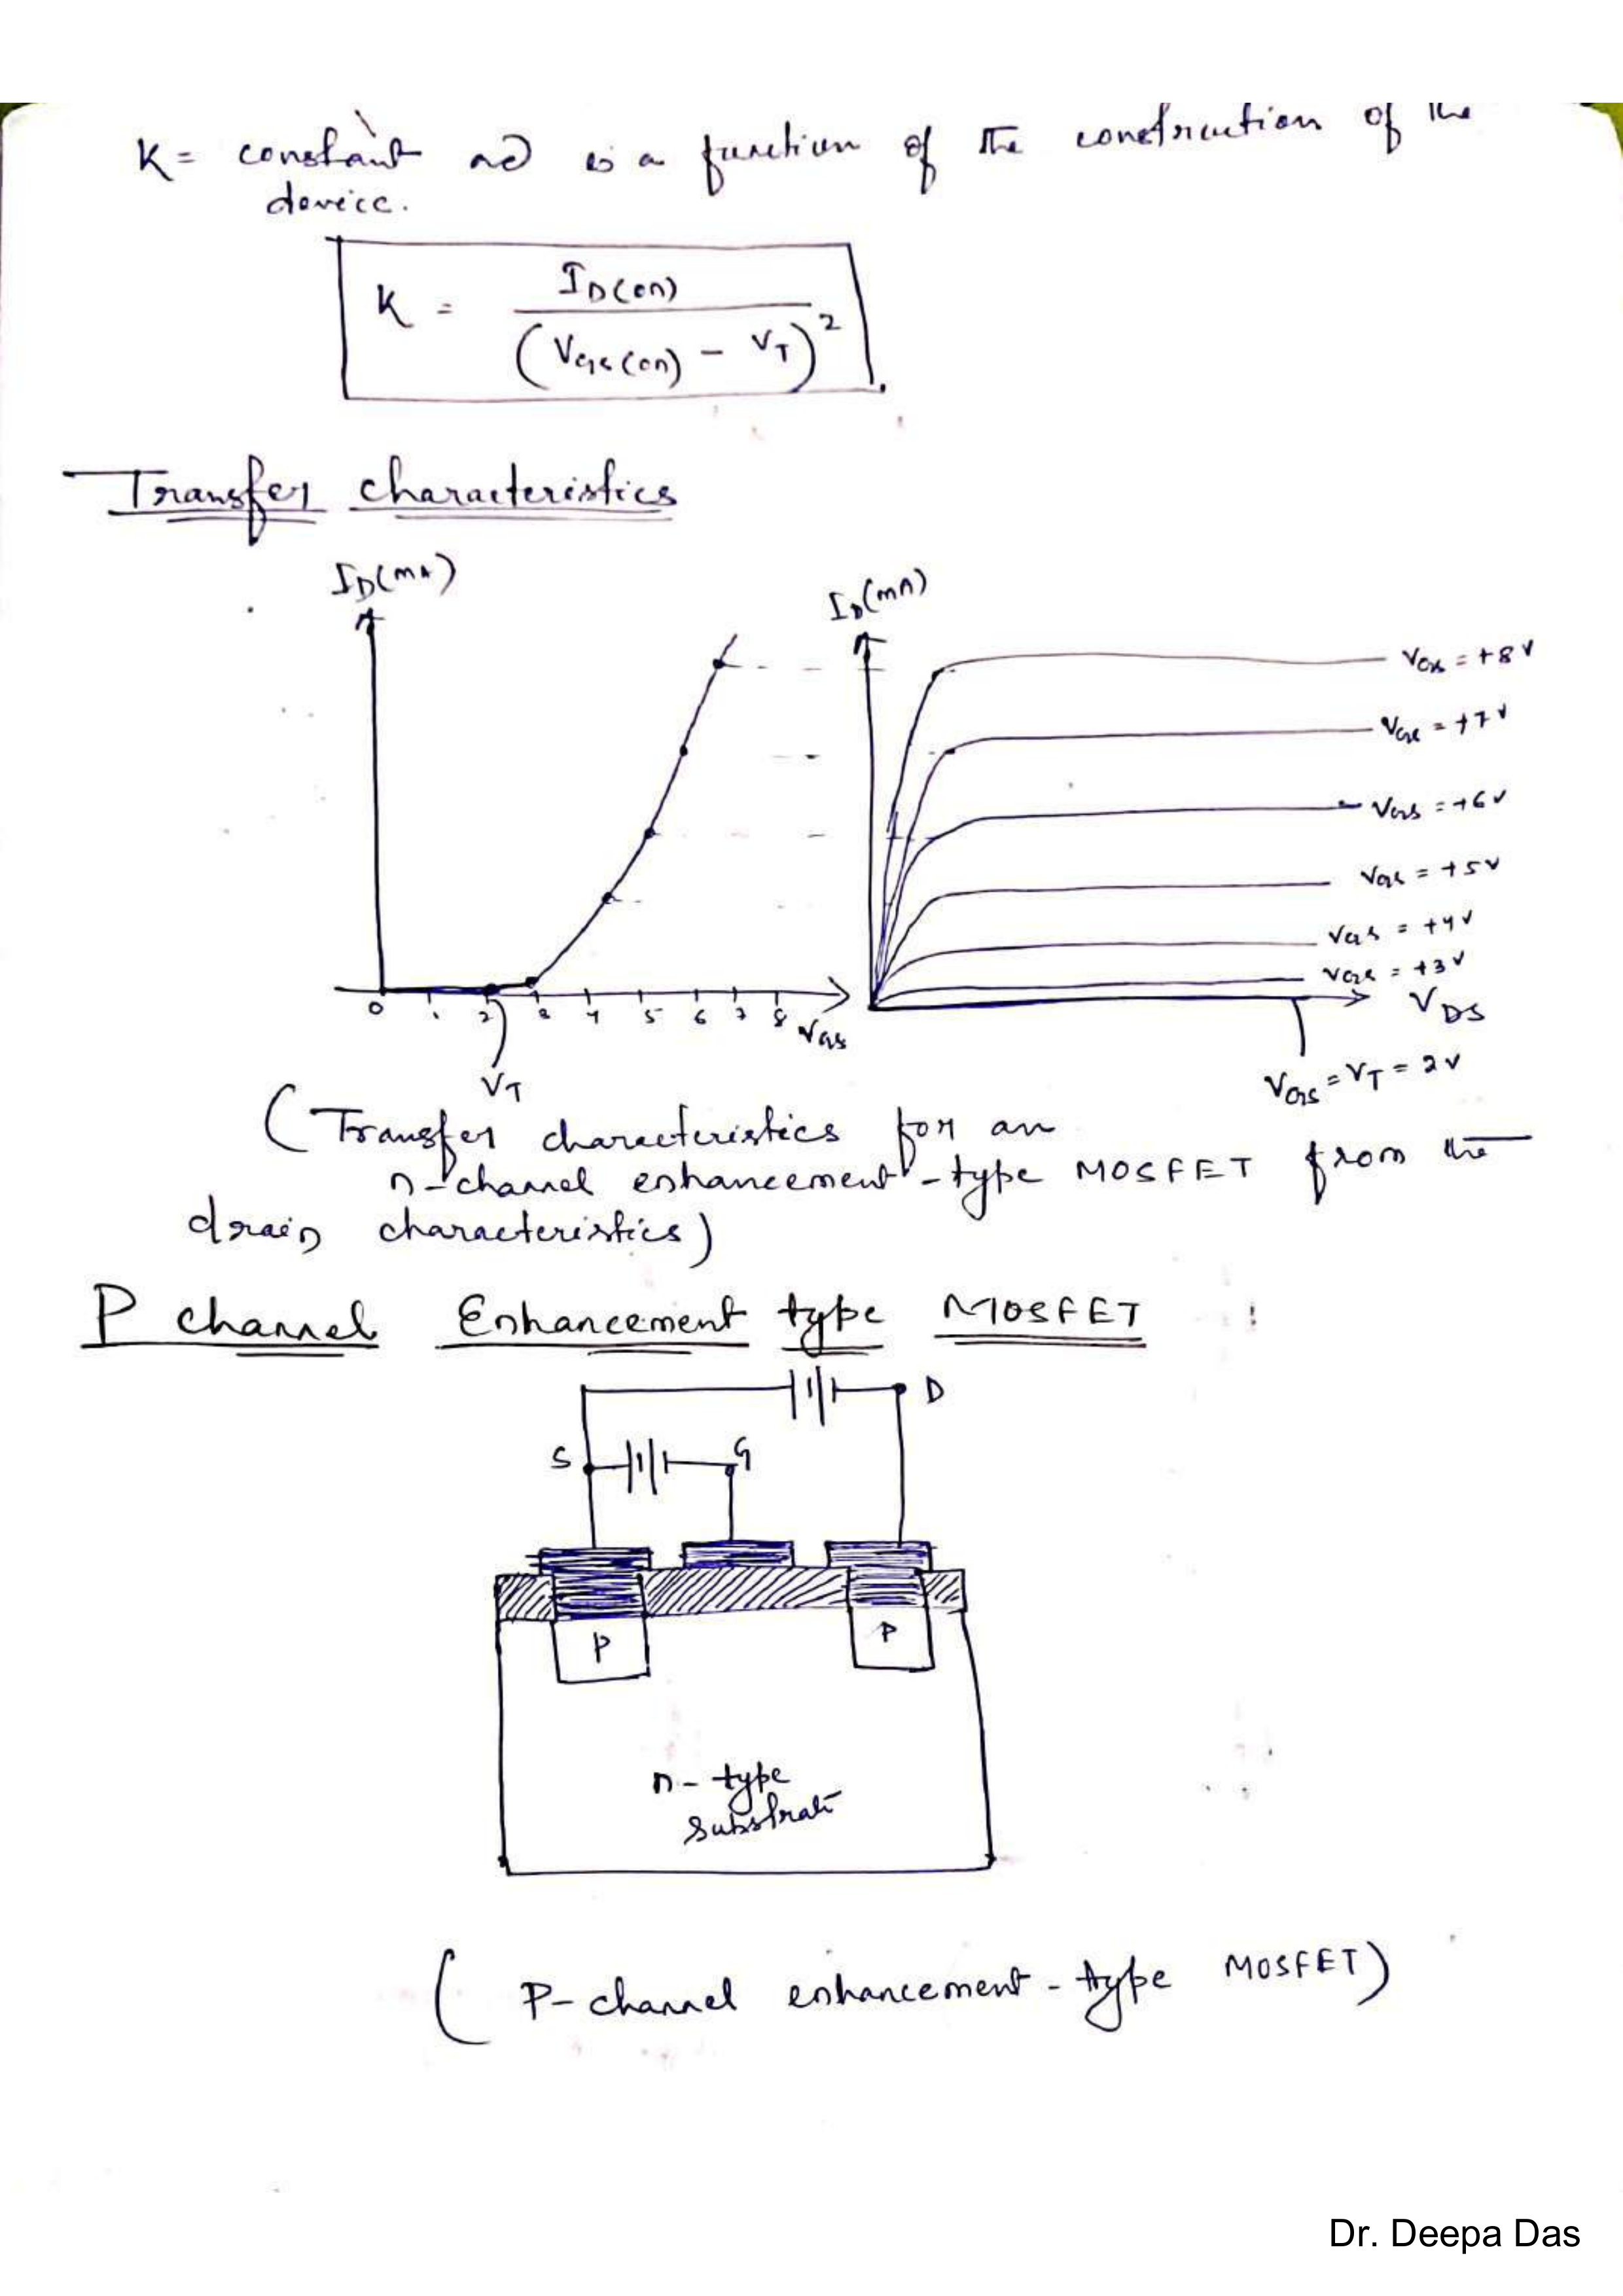 K = constant and is a function of the construction of the
device.
K = I_D(on) / (V_GS(on) - V_T)^2
Transfer characteristics
I_D(mA)
I_D(mA)
V_GS = +8V
V_GS = +7V
V_GS = +6V
V_GS = +5V
V_GS = +4V
V_GS = +3V
0 1 2 3 4 5 6 7 8 V_GS
V_DS
V_T
V_GS = V_T = 2V
(Transfer characteristics for an
n-channel enhancement-type MOSFET from the
drain characteristics)
P channel Enhancement type MOSFET :
D
S
G
P
P
n-type
substrate
(P-channel enhancement-type MOSFET)
Dr. Deepa Das